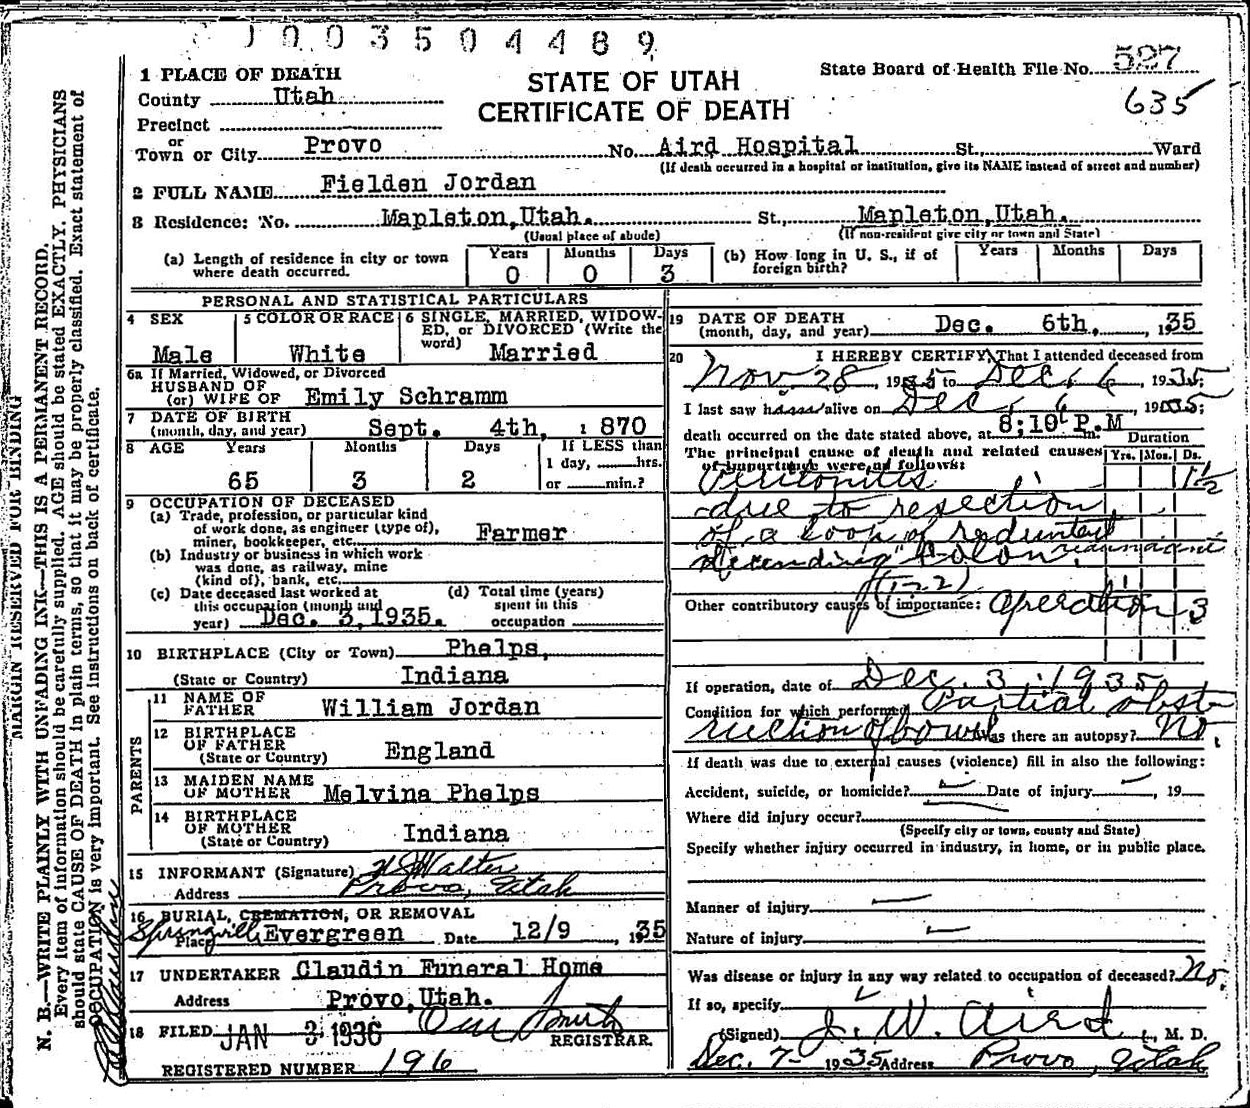 0 0 3 5 0 4 4 8 9
STATE OF UTAH
CERTIFICATE OF DEATH
State Board of Health File No. 527
635
1 PLACE OF DEATH
County Utah
Precinct
or
Town or City Provo No. Aird Hospital St., Ward
(If death occurred in a hospital or institution, give its NAME instead of street and number)
2 FULL NAME Fielden Jordan
3 Residence: No. Mapleton, Utah. St., Mapleton, Utah.
(Usual place of abode) (If non-resident give city or town and State)
(a) Length of residence in city or town where death occurred. Years 0 Months 0 Days 3 (b) How long in U. S., if of foreign birth? Years Months Days
PERSONAL AND STATISTICAL PARTICULARS
4 SEX Male
5 COLOR OR RACE White
6 SINGLE, MARRIED, WIDOWED, or DIVORCED (Write the word) Married
6a If Married, Widowed, or Divorced
HUSBAND OF
(or) WIFE OF Emily Schramm
7 DATE OF BIRTH
(month, day, and year) Sept. 4th, 1870
8 AGE Years Months Days If LESS than
65 3 2 1 day, hrs.
or min.?
9 OCCUPATION OF DECEASED
(a) Trade, profession, or particular kind
of work done, as engineer (type of),
miner, bookkeeper, etc. Farmer
(b) Industry or business in which work
was done, as railway, mine
(kind of), bank, etc.
(c) Date deceased last worked at
this occupation (month and
year) Dec. 3, 1935.
(d) Total time (years)
spent in this
occupation
10 BIRTHPLACE (City or Town) Phelps,
(State or Country) Indiana
PARENTS
11 NAME OF
FATHER William Jordan
12 BIRTHPLACE
OF FATHER
(State or Country) England
13 MAIDEN NAME
OF MOTHER Melvina Phelps
14 BIRTHPLACE
OF MOTHER
(State or Country) Indiana
15 INFORMANT (Signature) Walter
Address Provo, Utah
16 BURIAL, CREMATION, OR REMOVAL
Place Springville, Evergreen Date 12/9, 1935
17 UNDERTAKER Claudin Funeral Home
Address Provo, Utah.
18 FILED JAN 3 1936
REGISTRAR.
REGISTERED NUMBER 196
19 DATE OF DEATH
(month, day, and year) Dec. 6th, 1935
20 I HEREBY CERTIFY, That I attended deceased from
Nov. 28, 1935 to Dec. 6, 1935;
I last saw alive on Dec. 6, 1935;
death occurred on the date stated above, at 8:10 P.M m.
The principal cause of death and related causes
of importance were as follows:
Duration
Yrs. Mos. Ds.
Peritonitis 1½
due to resection
of a loop of
descending Colon
Other contributory causes of importance: Operation 3
If operation, date of Dec. 3, 1935
Condition for which performed Partial obst
ruction of bowel Was there an autopsy? No.
If death was due to external causes (violence) fill in also the following:
Accident, suicide, or homicide? Date of injury , 19
Where did injury occur?
(Specify city or town, county and State)
Specify whether injury occurred in industry, in home, or in public place.
Manner of injury
Nature of injury
Was disease or injury in any way related to occupation of deceased? No.
If so, specify
(Signed) J. W. Aird, M. D.
Dec. 7- 1935 Address Provo, Utah
MARGIN RESERVED FOR BINDING
N. B.—WRITE PLAINLY WITH UNFADING INK—THIS IS A PERMANENT RECORD.
Every item of information should be carefully supplied. AGE should be stated EXACTLY. PHYSICIANS
should state CAUSE OF DEATH in plain terms, so that it may be properly classified. Exact statement of
OCCUPATION is very important. See instructions on back of certificate.